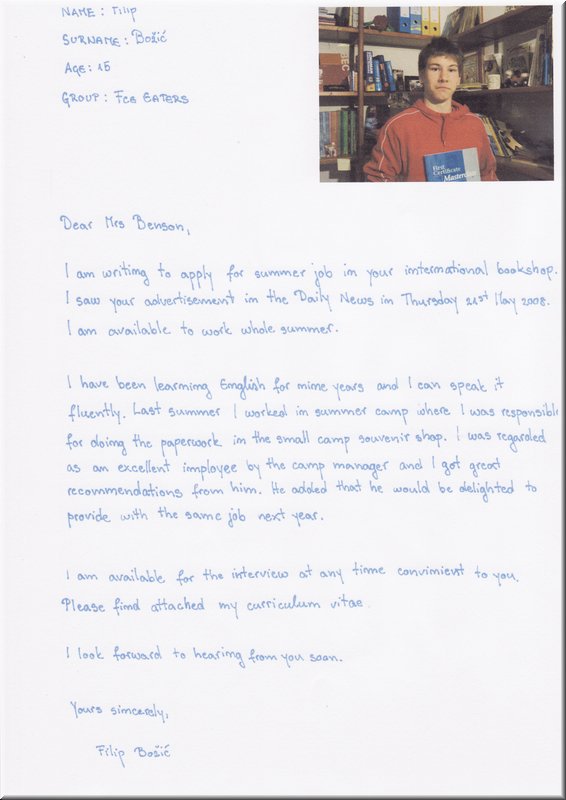 NAME : Filip
SURNAME : Božić
AGE : 15
GROUP : FCE EATERS
First
Certificate
Masterclass
Dear Mrs Benson,
I am writing to apply for summer job in your international bookshop.
I saw your advertisement in the Daily News in Thursday 21st May 2008.
I am available to work whole summer.
I have been learning English for nine years and I can speak it
fluently. Last summer I worked in summer camp where I was responsible
for doing the paperwork in the small camp souvenir shop. I was regarded
as an excellent imployee by the camp manager and I got great
recommendations from him. He added that he would be delighted to
provide with the same job next year.
I am available for the interview at any time convinient to you.
Please find attached my curriculum vitae.
I look forward to hearing from you soon.
Yours sincerely,
Filip Božić